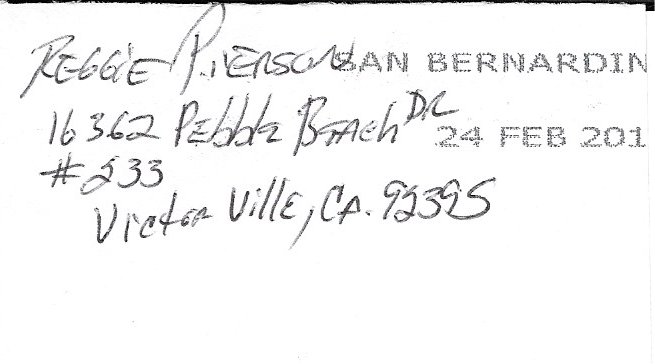 REGGIE PIVERSON SAN BERNARDIN
16362 PEbblE BEACH DR 24 FEB 201
#233
VictOR VillE, CA. 92395